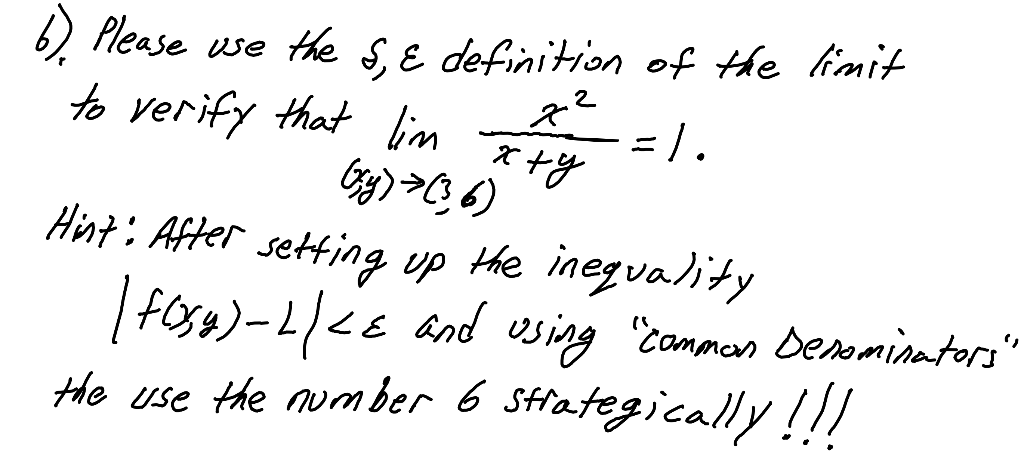 6). Please use the δ, ε definition of the limit
to verify that lim x²/(x+y) = 1.
(x,y)→(3,6)
Hint: After setting up the inequality
|f(x,y)-L|<ε and using "Common Denominators"
the use the number 6 strategically!!!